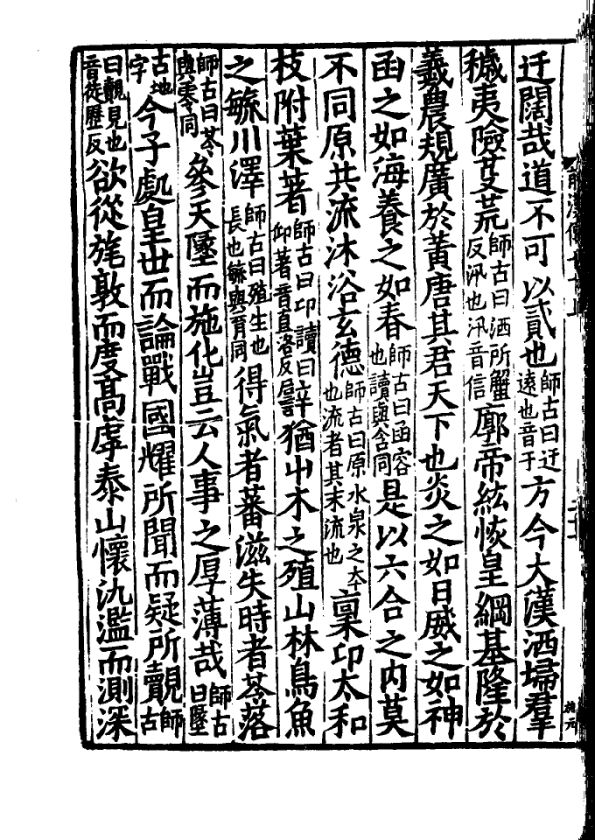 迂闊哉道不可以貳也師古曰迂遠也音于方今大漢洒埽羣
穢夷險芟荒師古曰洒所蟹反汛也汛音信廓帝紘恢皇綱基隆於
羲農規廣於黃唐其君天下也炎之如日威之如神
函之如海養之如春師古曰函容也讀與含同是以六合之内莫
不同原共流沐浴玄德師古曰原水泉之本也流者其末流也稟卬太和
枝附葉著師古曰卬讀曰仰著音直洛反譬猶屮木之殖山林鳥魚
之毓川澤師古曰殖生也長也毓與育同得氣者蕃滋失時者苓落
師古曰苓與零同參天墬而施化豈云人事之厚薄哉師古曰墬
古地字今子處皇世而論戰國耀所聞而疑所覿師古
曰覿見也音徒歷反欲從旄敦而度高虖泰山懷氿濫而測深